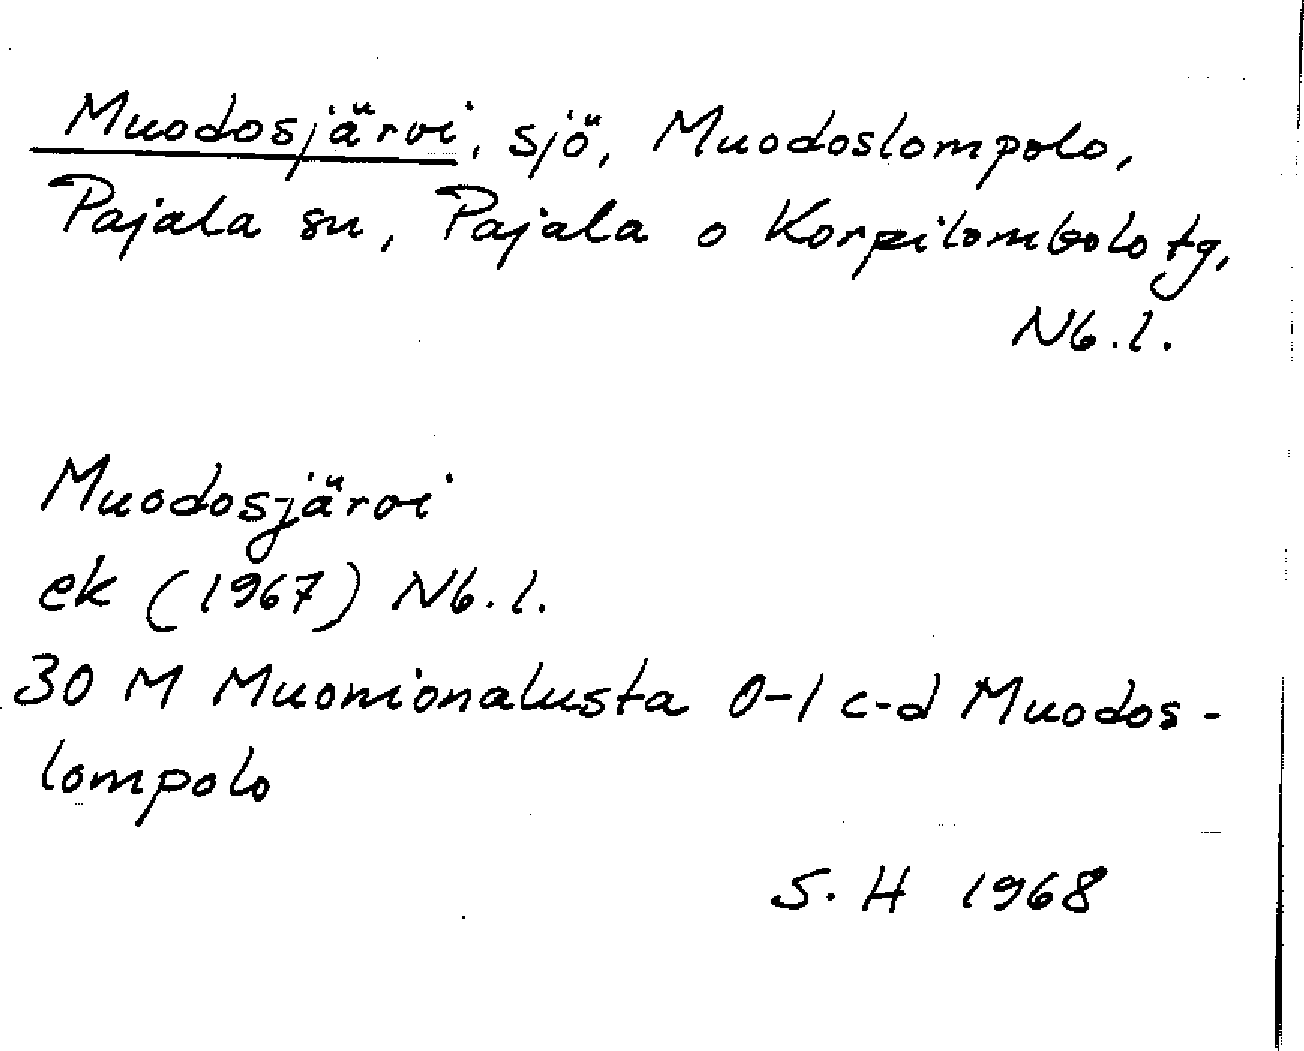 Muodosjärvi, sjö, Muodoslompolo,
Pajala sn, Pajala o Korpilombolo tg,
Nb.l.
Muodosjärvi
ek (1967) Nb.l.
30 M Muonionalusta 0-1 c-d Muodos-
lompolo
S.H 1968